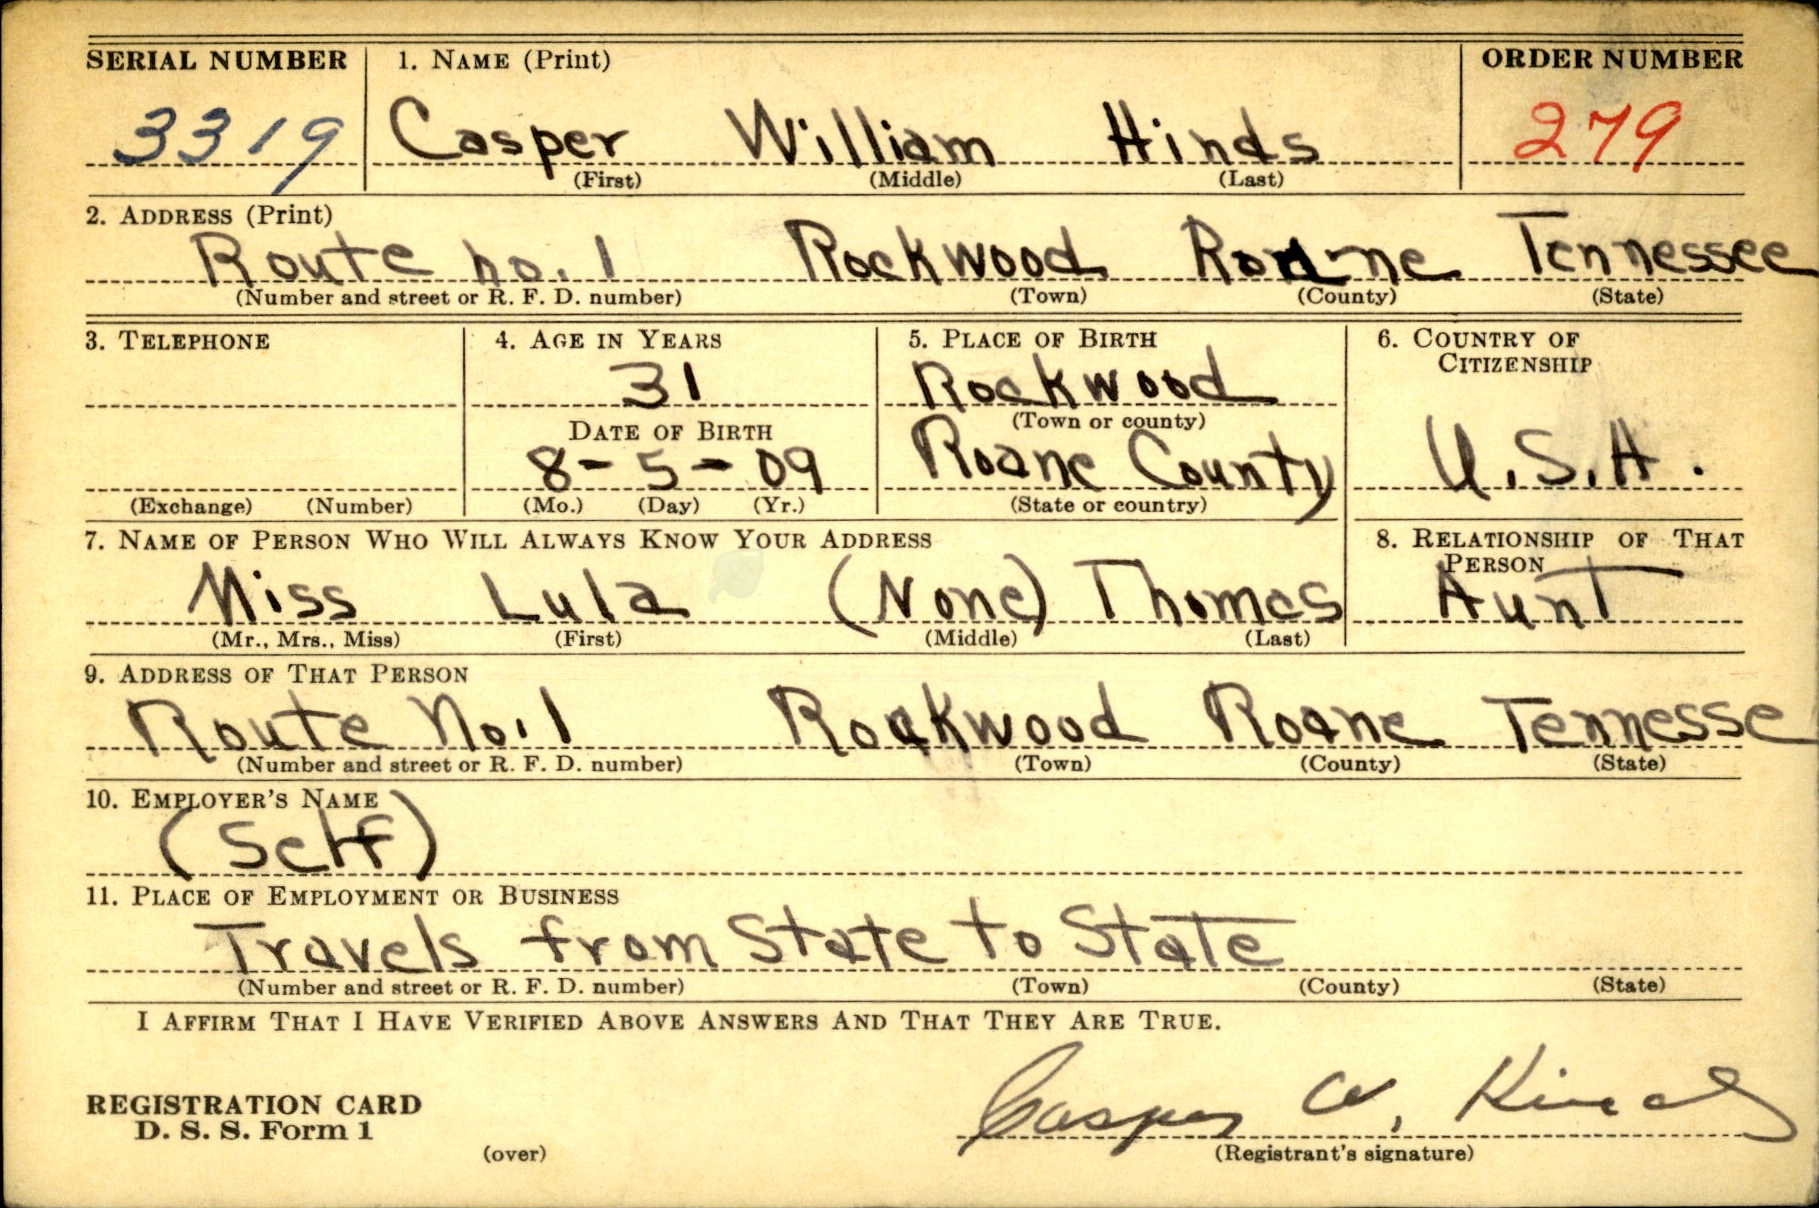 SERIAL NUMBER 1. NAME (Print) ORDER NUMBER
3319 Casper William Hinds 279
(First) (Middle) (Last)
2. ADDRESS (Print)
Route no. 1 Rockwood Roane Tennessee
(Number and street or R. F. D. number) (Town) (County) (State)
3. TELEPHONE 4. AGE IN YEARS 5. PLACE OF BIRTH 6. COUNTRY OF
CITIZENSHIP
31 Rockwood
(Town or county)
DATE OF BIRTH
8-5-09 Roane County U.S.A.
(Exchange) (Number) (Mo.) (Day) (Yr.) (State or country)
7. NAME OF PERSON WHO WILL ALWAYS KNOW YOUR ADDRESS 8. RELATIONSHIP OF THAT
PERSON
Miss Lula (None) Thomas Aunt
(Mr., Mrs., Miss) (First) (Middle) (Last)
9. ADDRESS OF THAT PERSON
Route No. 1 Rockwood Roane Tennesse
(Number and street or R. F. D. number) (Town) (County) (State)
10. EMPLOYER'S NAME
(Self)
11. PLACE OF EMPLOYMENT OR BUSINESS
Travels from State to State
(Number and street or R. F. D. number) (Town) (County) (State)
I AFFIRM THAT I HAVE VERIFIED ABOVE ANSWERS AND THAT THEY ARE TRUE.
REGISTRATION CARD
D. S. S. Form 1
Casper W. Hinds
(over) (Registrant's signature)